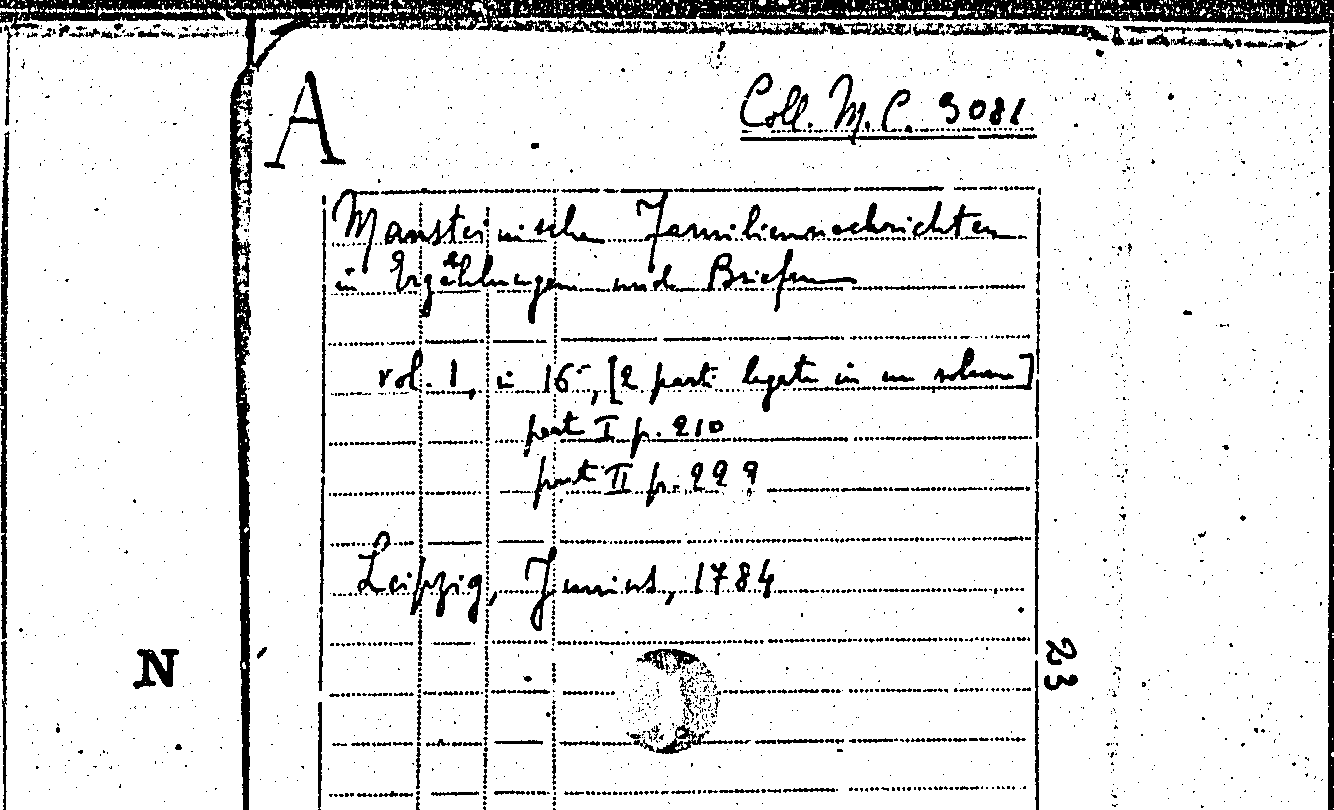 A
Coll. M. C. 3081
Mansteinische Familiennachrichten
in Erzählungen und Briefen
vol. 1, in 16°, [2 parti legate in un volume]
part I p. 210
part II p. 229
Leipzig, Junius, 1784
N
23